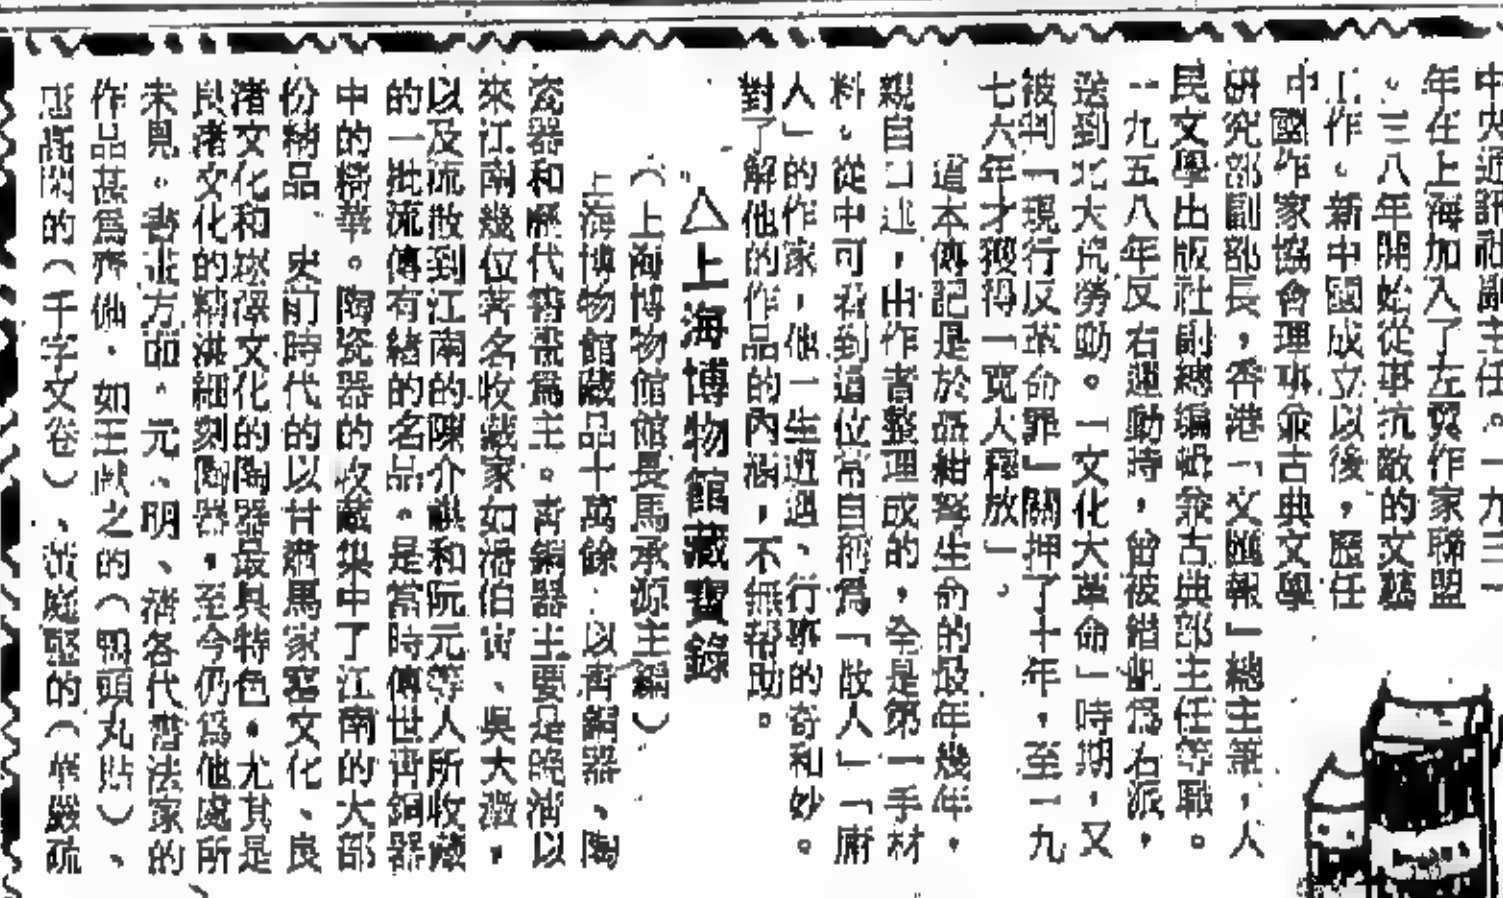 中央通訊社副主任。一九三一
年在上海加入了左翼作家聯盟
。三八年開始從事抗敵的文藝
工作。新中國成立以後，歷任
中國作家協會理事兼古典文學
研究部副部長，香港「文匯報」總主筆，人
民文學出版社副總編輯兼古典部主任等職。
一九五八年反右運動時，曾被錯劃爲右派，
送到北大荒勞動。「文化大革命」時期，又
被判「現行反革命罪」關押了十年，至一九
七六年才獲得「寬大釋放」。
道本傳記是於聶紺弩生命的最年幾年，
親自口述，由作者整理成的，全是第一手材
料。從中可看到這位常自稱爲「散人」「廚
人」的作家，他一生遭遇、行事的奇和妙。
對了解他的作品的內涵，不無幫助。
△上海博物館藏寶錄
（上海博物館館長馬承源主編）
上海博物館藏品十萬餘，以靑銅器、陶
瓷器和歷代書畫爲主。靑銅器主要是晚淸以
來江南幾位著名收藏家如潘伯寅、吳大澂，
以及流散到江南的陳介祺和阮元等人所收藏
的一批流傳有緒的名品。是當時傳世靑銅器
中的精華。陶瓷器的收藏集中了江南的大部
份精品，史前時代的以甘肅馬家窰文化、良
渚文化和崧澤文化的陶器最具特色，尤其是
良渚文化的精湛細刻陶器，至今仍爲他處所
未見。書畫方面，元、明、淸各代書法家的
作品甚爲齊備，如王獻之的（鴨頭丸貼）、
高閑的（千字文卷）、黃庭堅的（華嚴疏